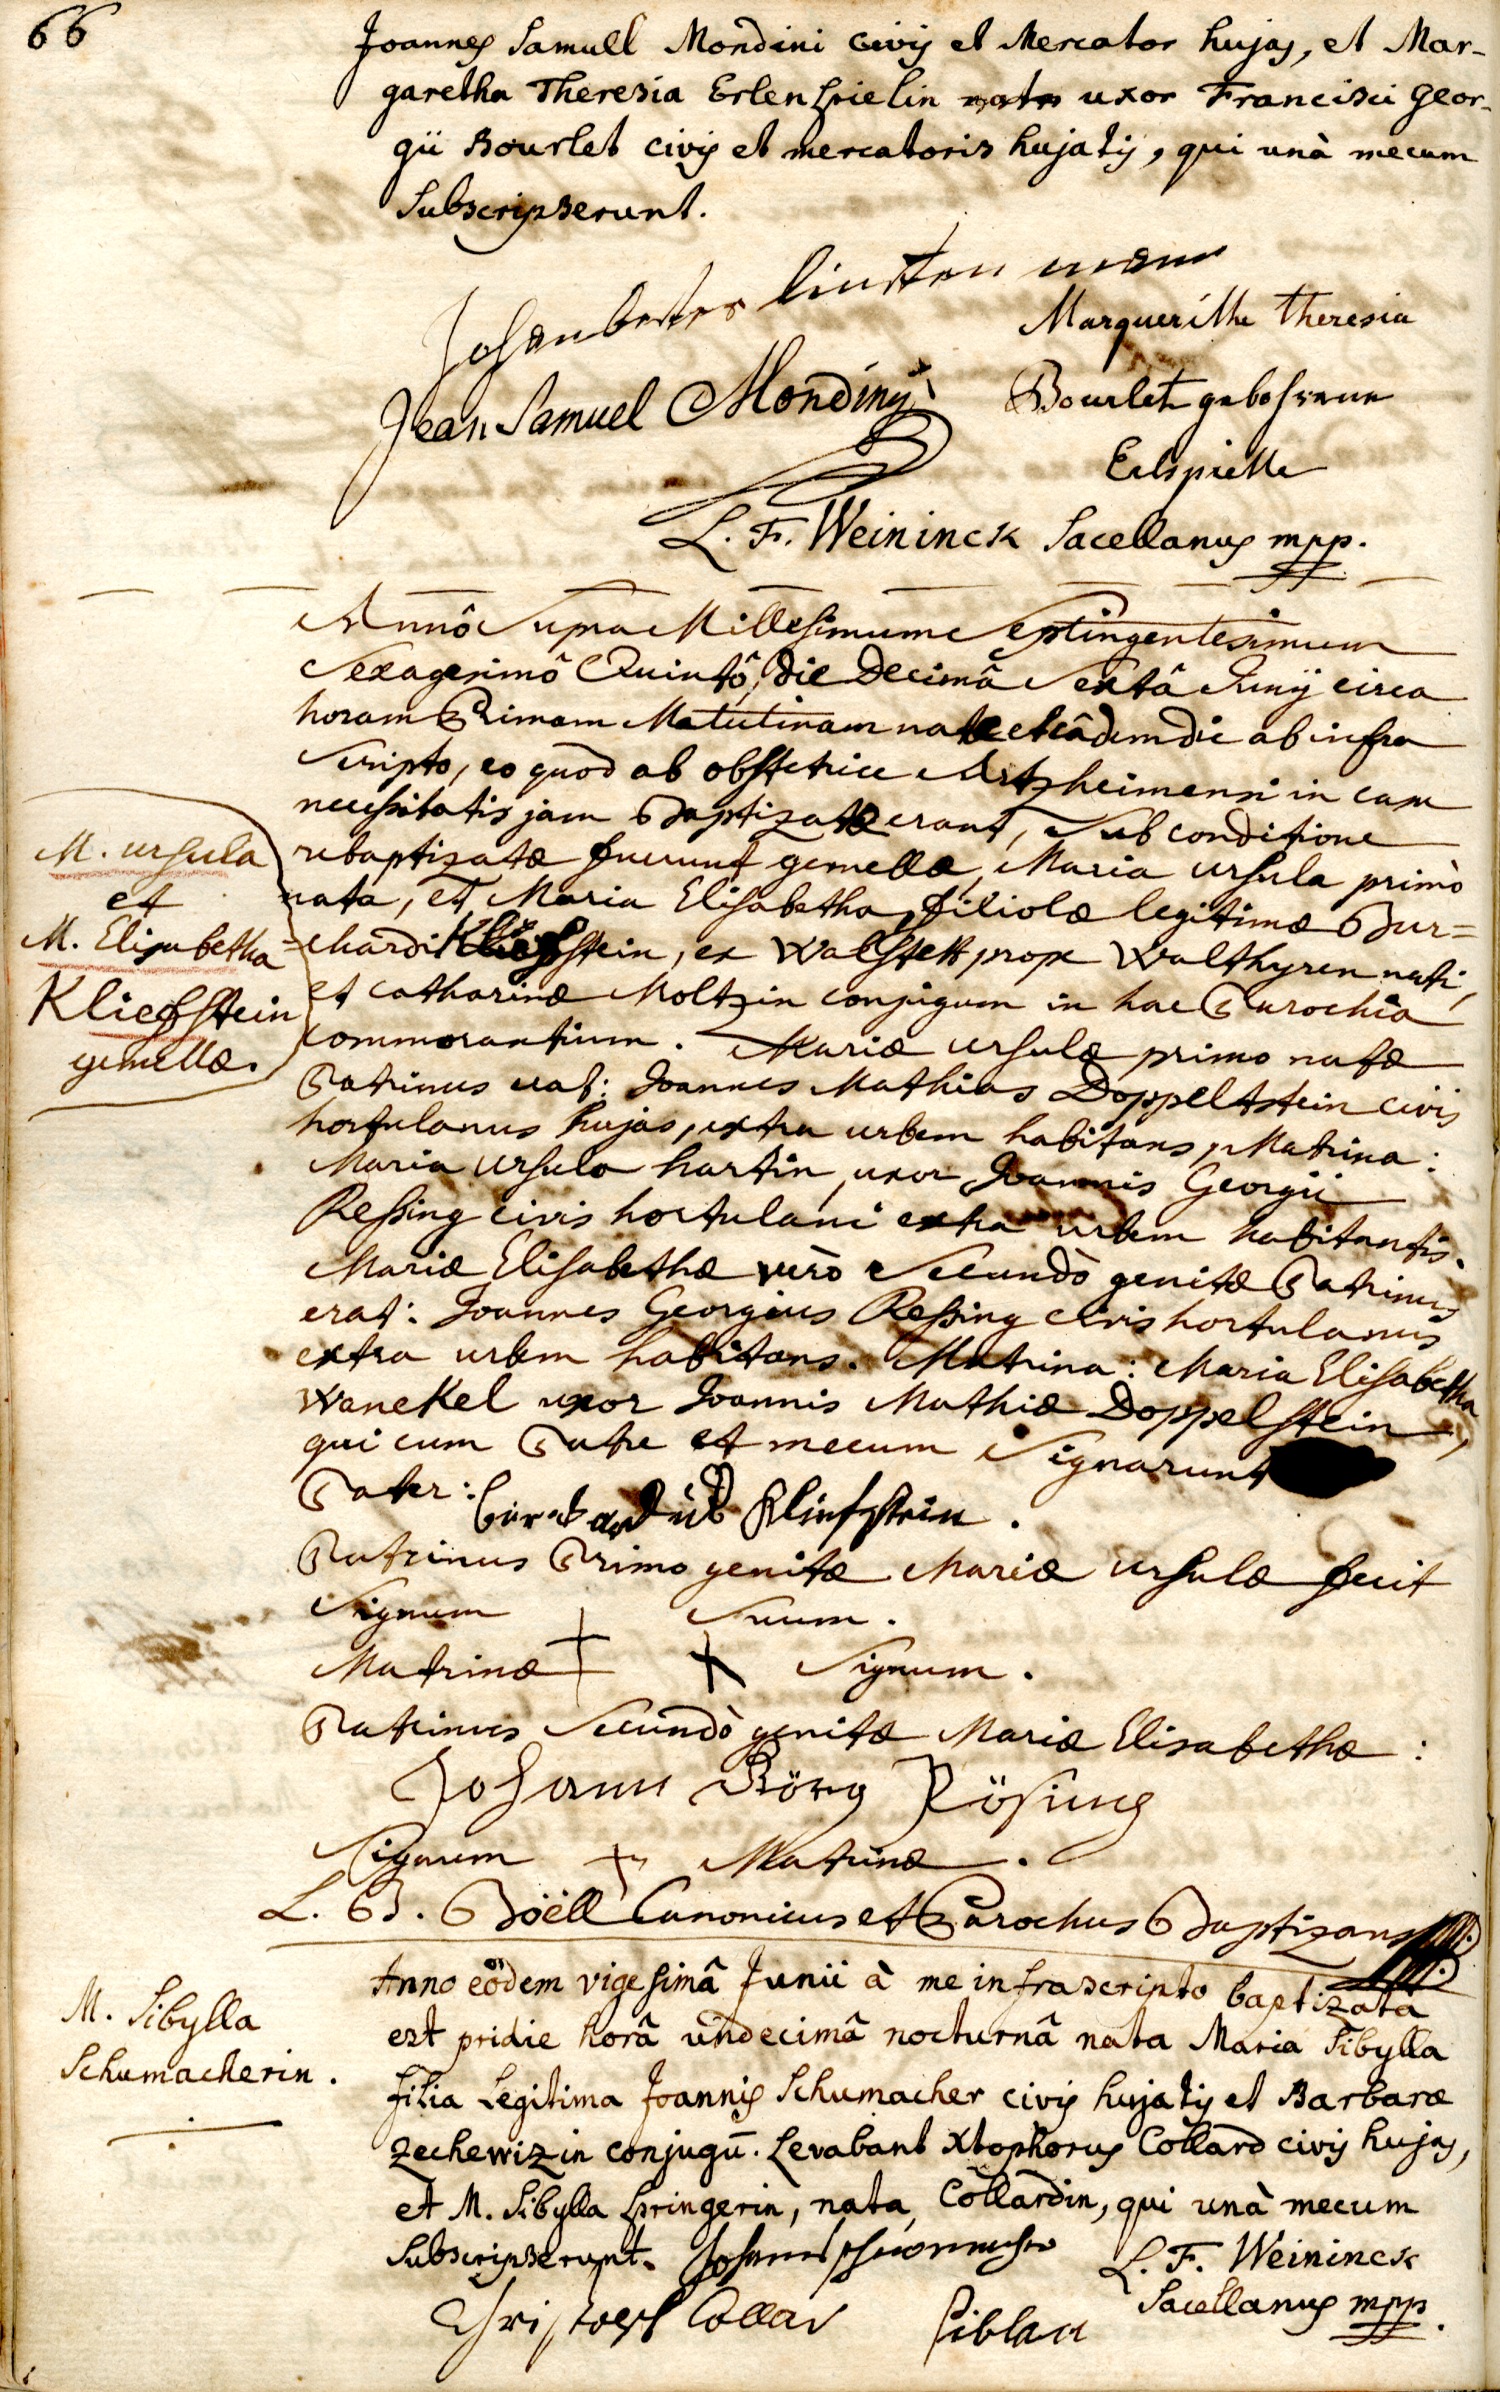 66
Joannes Samuel Mondini civis et Mercator hujas, et Mar-
garetha Theresia Erlenspielin nata uxor Francisci Geor-
gii Bourlet civis et mercatoris hujatis, qui unà mecum
Subscripserunt.
Jean Samuel Mondiny
Marguerithe Theresia
Bourlet gebohrene
Erlspielle
L. F. Weininck Sacellanus mpp.
Annô Supra Millesimum Septingentesimum
Sexagesimô Quintô, die Decimâ Sextâ Junij circa
horam Primam Matutinam natæ et eâdem die ab infra
Scripto, eo quod ab obstetrice Artzheimensi in casu
necessitatis jam Baptizatæ erant, Sub conditione
rebaptizatæ fuerunt gemellæ, Maria Ursula primò
nata, et Maria Elisabetha, filiolæ legitimæ Bur=
=chardi Kliefstein, ex Walstett prope Walthyren nati,
et Catharinæ Moltzin conjugum in hac Parochia
commorantium. Mariæ Ursulæ primo natæ
Patrinus erat: Joannes Mathias Doppeltstein civis
hortulanus hujas, extra urbem habitans, Matrina:
Maria Ursula Hartin, uxor Joannis Georgii
Reßing civis hortulani extra urbem habitantis.
Mariæ Elisabethæ verò Secundò genitæ Patrinus
erat: Joannes Georgius Reßing civis hortulanus
extra urbem habitans. Matrina: Maria Elisabetha
Wanckel uxor Joannis Mathiæ Doppelstein,
qui cum Patre et mecum Signarunt
Pater: Burckardus Kliefstein.
Patrinus Primo genitæ Mariæ Ursulæ fecit
Signum + Suum.
Matrinæ + Signum.
Patrinus Secundò genitæ Mariæ Elisabethæ:
Johann Görg Rösing
Signum + Matrinæ.
L. B. Böëll Canonicus et Parochus Baptizans mpp.
M. Ursula
et
M. Elisabetha
Kliefstein
gemellæ.
Anno eôdem vigesimâ Junii à me infrascripto baptizata
est pridie horâ undecimâ nocturnâ nata Maria Sibylla
filia Legitima Joannis Schumacher civis hujatis et Barbaræ
Zechewizin conjugū. Levabant Xtophorus Collard civis hujas,
et M. Sibylla Springerin, nata Collardin, qui unà mecum
Subscripserunt. Johannes Schuomacher L. F. Weininck
Sacellanus mpp.
Christoph Collar
M. Sibylla
Schumacherin.